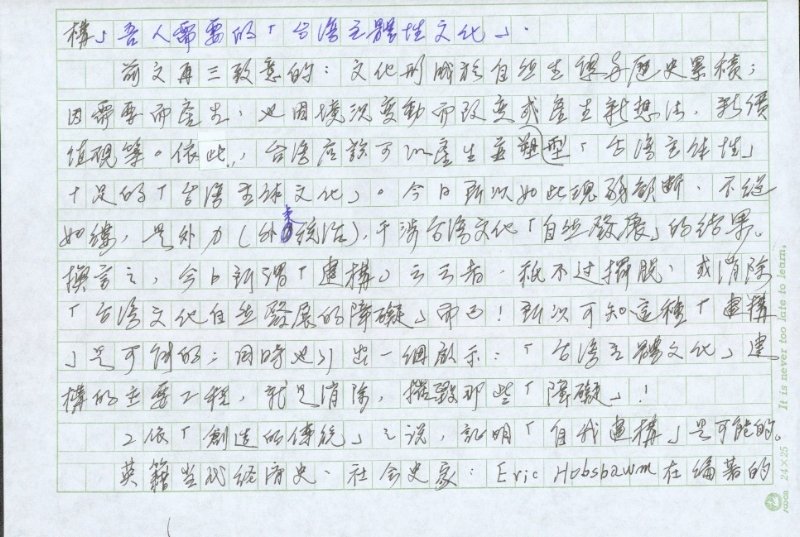 構」吾人需要的「台湾主體性文化」.
前文再三致意的：文化形成於自然生態與歷史累積；
因需要而產生，也因境況變動而改变或產生新想法、新價
值觀等。依此，台湾应該可以產生並塑型「台湾主体性」
十足的「台湾主体文化」。今日所以如此瑰弱顓断、不絕
如縷，是外力(外來統治)，干涉台湾文化「自然發展」的结果。
換言之，今日所謂「建構」云云者，祇不过擺脱、或消除
「台湾文化自然發展的障礙」而已！所以可知這種「建構
」是可能的；同時也引出一個啟示：「台湾主體文化」建
構的主要工程，就是消除，摧毀那些「障礙」！
2依「創造的傳統」之說，証明「自我建構」是可能的。
英籍当代经済史、社会史家：Eric Hobsbawm在编著的
It is never too late to learn.
24×25